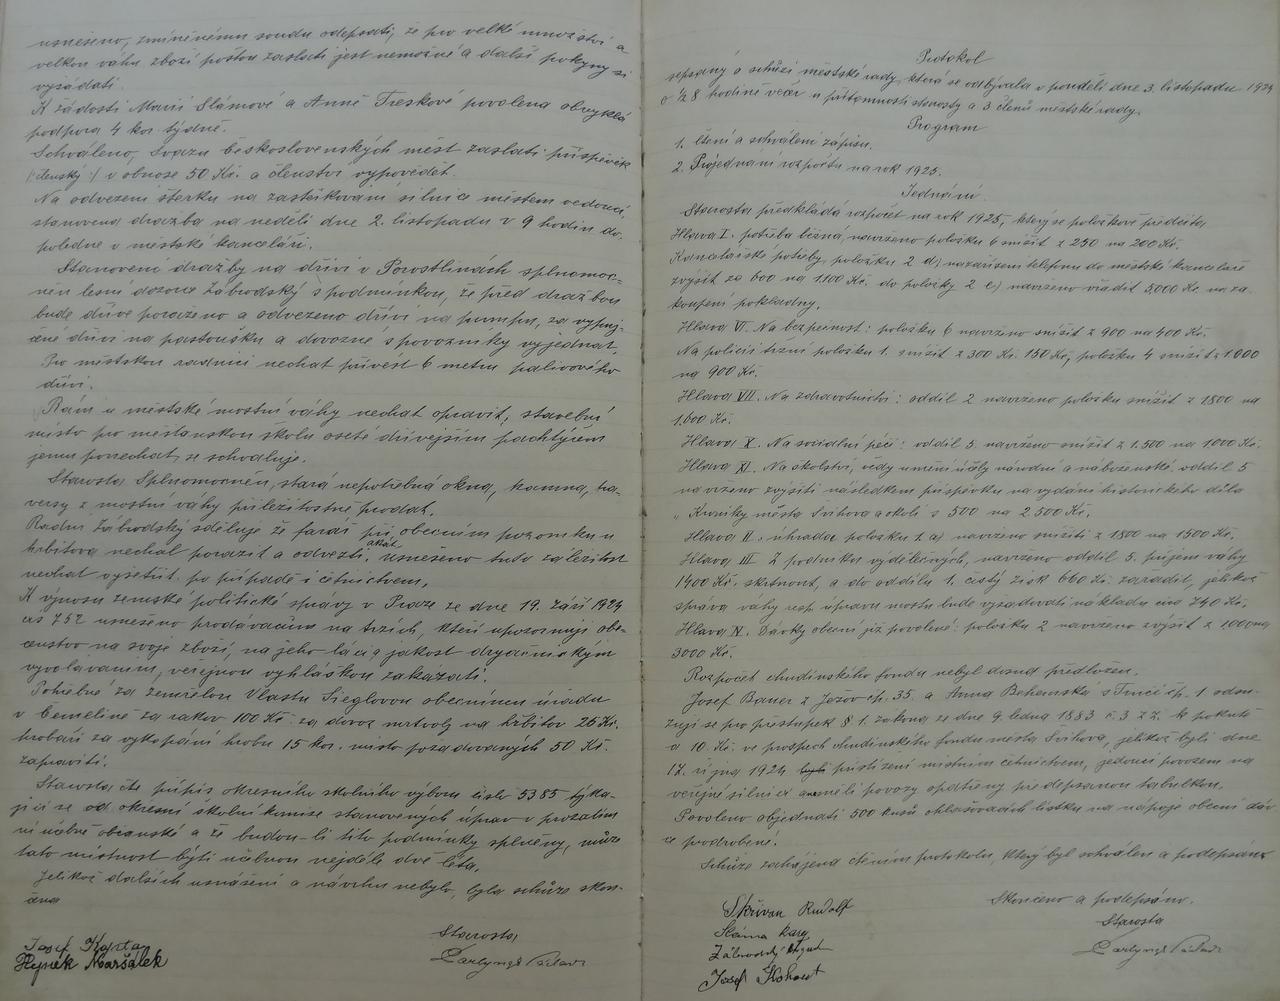 usneseno, zmíněnému soudu odepsati, že pro velké množství a
velkou váhu zboží poštou zaslati jest nemožné a další pokyny si
vyžádati.
K žádosti Marii Slámové a Anně Treskové povolena obvyklá
podpora 4 kor. týdně.
Schváleno, Svazu československých měst zaslati příspěvek
(:členský:) v obnose 50 Kč. a členství vypovědět.
Na odvezení štěrku na zaštěrkování silnice městem vedoucí,
stanovena dražba na neděli dne 2. listopadu v 9 hodin do-
poledne v městské kanceláři.
Stanovení dražby na dříví v Porostlinách splnomoc-
něn lesní dozorce Zábrodský s podmínkou, že před dražbou
bude dříve poraženo a odvezeno dříví na pumpu, za vypůj-
čené dříví na pastoušku a dovozné s povozníky vyjednat.
Pro městskou radnici nechat přivést 6 metrů palivového
dříví.
Rám u městské mostní váhy nechat opravit, stavební
místo pro měšťanskou školu oseté dřívějším pachtýřem
jemu ponechat, se schvaluje.
Starosta Splnomocněn, stará nepotřebná okna, kamna, tra-
versy z mostní váhy příležitostně prodat.
Radní Zábrodský sděluje že farář při obecním pozemku u
hřbitova nechal porazit a odvezti. Usneseno tuto záležitost
nechat vyšetřit po případě i četnictvem.
K výnosu zemské politické správy v Praze ze dne 19. září 1924
čís 752 usneseno prodavačům na trzích, kteří upozorňují obe-
censtvo na svoje zboží, na jeho láci a jakost dryáčnickým
vyvoláváním, veřejnou vyhláškou zakázati.
Pohřebné za zemřelou Vlastu Sieglovou obecnímu úřadu
v Čemelině za rakev 100 Kč. za dovoz mrtvoly na hřbitov 25 Kč.
hrobaři za vykopání hrobu 15 kor. místo požadovaných 50 Kč.
zapraviti.
Starosta čte přípis okresního školního výboru číslo 5385 týka-
jící se od okresní školní komise stanovených úprav v prozatím
ní učebně občanské a že budou-li tito podmínky splněny, může
tato místnost býti učebnou nejdéle dvě léta.
Jelikož dalších usnášení a návrhů nebylo, byla schůze skon-
čena
Starosta
Josef Kajtan
Hynek Maršálek
Protokol
sepsaný o schůzi městské rady, která se odbývala v pondělí dne 3. listopadu 1924
o ½ 8 hodině večer u přítomnosti starosty a 3 členů městské rady.
Program
1. čtení a schválení zápisu.
2. Projednání rozpočtu na rok 1925.
Jednání.
Starosta předkládá rozpočet na rok 1925, který se položkově předčítá
Hlava I. potřeba běžná, navrženo položku 6 snížit z 250 na 200 Kč.
Kancelářské potřeby, položku 2 d) na zařízení telefonu do městské kanceláře
zvýšit ze 600 na 1.100 Kč. do položky 2 e) navrženo vřadit 5.000 Kč. na za-
koupení pokladny.
Hlava VI. Na bezpečnost: položku 6 navrženo snížit z 900 na 400 Kč.
Na policii tržní položku 1. snížit z 300 Kč. 150 Kč, položku 4 snížit z 1.000
na 900 Kč.
Hlava VII. Na zdravotnictví: oddíl 2 navrženo položku snížit z 1800 na
1.600 Kč.
Hlava X. Na sociální péči: oddíl 5. navrženo snížit z 1.500 na 1000 Kč.
Hlava XI. Na školství, vědy umění účely národní a náboženské oddíl 5
navrženo zvýšiti následkem příspěvku na vydání historického díla
„Kroniky města Švihova a okolí s 500 na 2.500 Kč.
Hlava II. úhrada položku 1. a) navrženo snížiti z 1800 na 1500 Kč.
Hlava III. Z podniku výdělečných, navrženo oddíl 5. příjem váhy
1400 Kč. škrtnout, a do oddílu 1. čistý zisk 660 Kč. zařadit, jelikož
správa váhy resp úpravu mostu bude vyžadovati nákladu cca 740 Kč.
Hlava IV. Dávky obecní již povolené: položku 2 navrženo zvýšit z 1000 na
3000 Kč.
Rozpočet chudinského fondu nebyl dosud předložen.
Josef Bauer z Jezov čp. 35. a Anna Bohamská s Trnčí čp. 1 odsu-
zují se pro přestupek § 1. zákona ze dne 9. ledna 1883 č. 3 z.z. k pokutě
a 10 Kč. ve prospěch chudinského fondu města Švihova, jelikož byli dne
17. října 1924 přistiženi místním četnictvem, jedouci povozem na
veřejné silnici a neměli povozy opatřeny předepsanou tabulkou.
Povoleno objednati 500 kusů ohlašovacích lístků na nápoje obecní dáv
ce podrobené.
Schůze zahájena čtením protokolu, který byl schválen a podepsán.
Skončeno a podepsáno.
Starosta
Skřivan Rudolf
Sláma Karel
Zábrodský
Josef Kohout